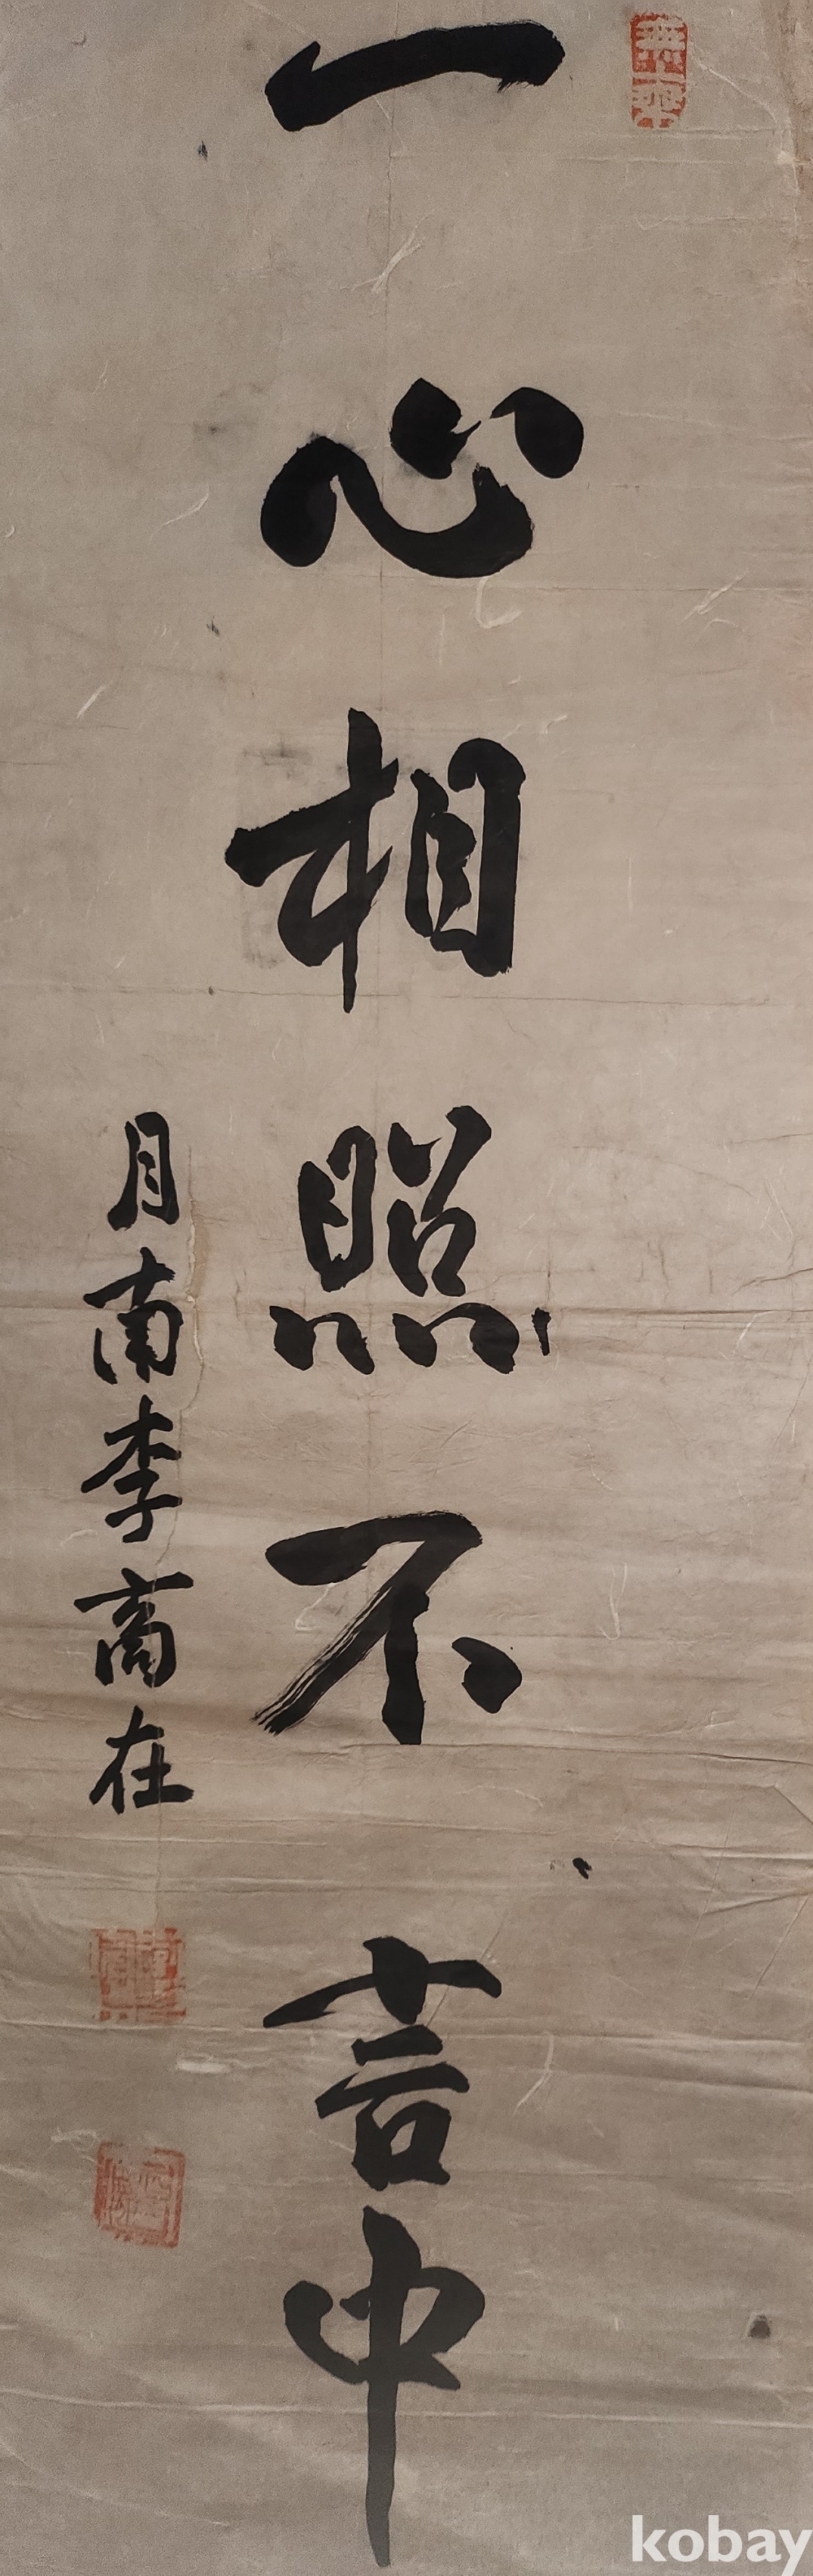 無量壽
一心相照不言中
月南李商在
kobay